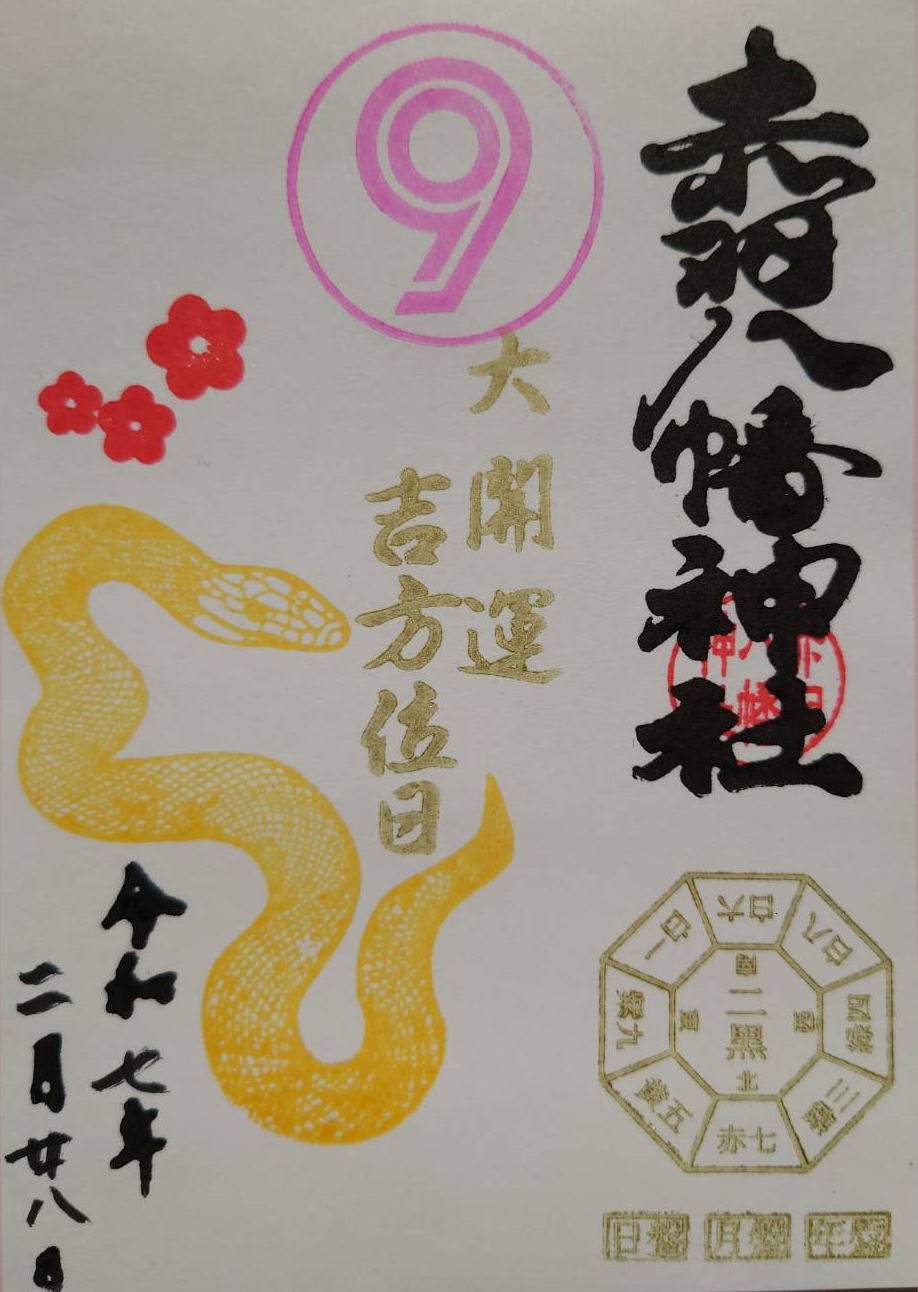 赤羽八幡神社
9
大開運
吉方位日
令和七年
二月廿八日
白六
白八
碧三
赤七
黄五
紫九
白一
緑四
二黒
南
北
年盤
月盤
日盤